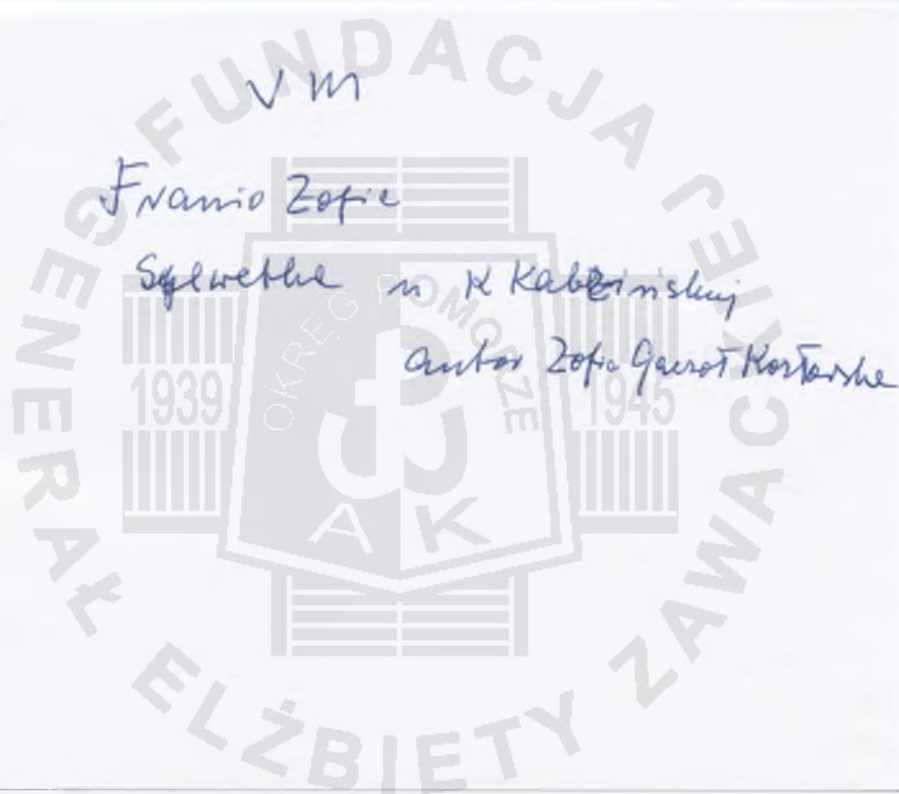 VM
Franio Zofia
Sylwetka u K Kabzińskiej
autor Zofia Gaczoł Kozłowska
FUNDACJA GENERAŁ ELŻBIETY ZAWACKIEJ
OKRĘG POMORZE
1939
1945
AK